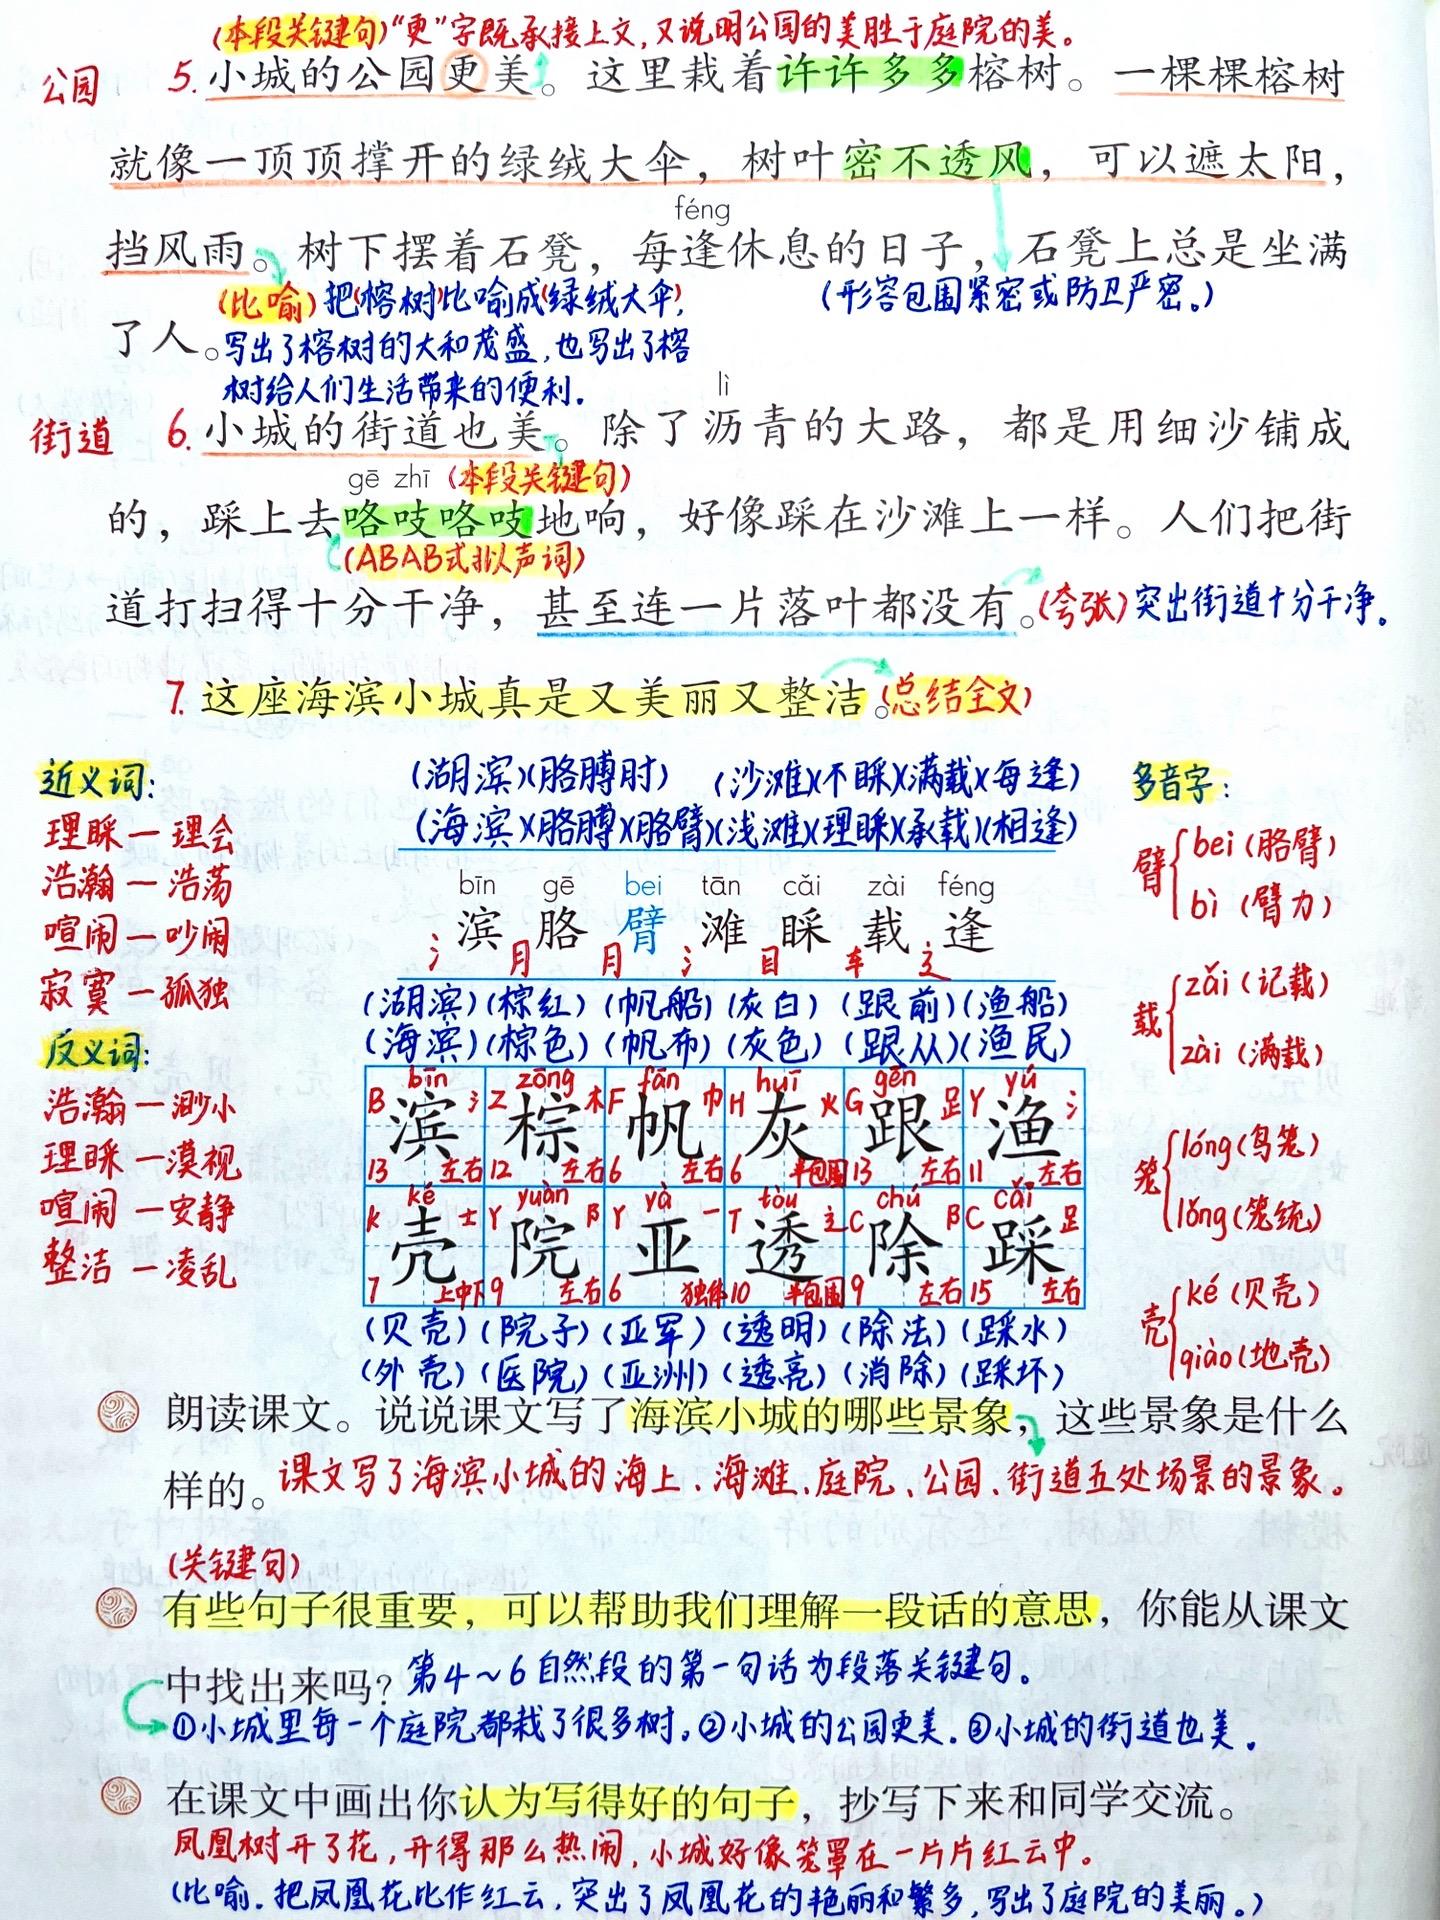 (本段关键句)“更”字既承接上文,又说明公园的美胜于庭院的美。
公园 5. 小城的公园更美。这里栽着许许多多榕树。一棵棵榕树
就像一顶顶撑开的绿绒大伞，树叶密不透风，可以遮太阳，
féng
挡风雨。树下摆着石凳，每逢休息的日子，石凳上总是坐满
(比喻)把“榕树”比喻成“绿绒大伞”, (形容包围紧密或防卫严密。)
了人。写出了榕树的大和茂盛,也写出了榕
树给人们生活带来的便利.
lì
街道 6. 小城的街道也美。除了沥青的大路，都是用细沙铺成
gē zhī (本段关键句)
的，踩上去咯吱咯吱地响，好像踩在沙滩上一样。人们把街
(ABAB式拟声词)
道打扫得十分干净，甚至连一片落叶都没有。(夸张)突出街道十分干净.
7. 这座海滨小城真是又美丽又整洁。(总结全文)
近义词:
理睬一理会
浩瀚一浩荡
喧闹一吵闹
寂寞一孤独
反义词:
浩瀚一渺小
理睬一漠视
喧闹一安静
整洁一凌乱
(湖滨)(胳膊肘) (沙滩)(不睬)(满载)(每逢)
(海滨)(胳膊)(胳臂)(浅滩)(理睬)(承载)(相逢)
bīn gē bei tān cǎi zài féng
滨 胳 臂 滩 睬 载 逢
氵 月 月 氵 目 车 辶
(湖滨)(棕红)(帆船)(灰白)(跟前)(渔船)
(海滨)(棕色)(帆布)(灰色)(跟从)(渔民)
bīn zōng fān huī gēn yú
B 氵 Z 木 F 巾 H 火 G 足 Y 氵
滨 棕 帆 灰 跟 渔
13 左右 12 左右 6 左右 6 半包围 13 左右 11 左右
ké yuàn yà tòu chú cǎi
K 士 Y 阝 Y 一 T 辶 C 阝 C 足
壳 院 亚 透 除 踩
7 上中下 9 左右 6 独体 10 半包围 9 左右 15 左右
(贝壳)(院子)(亚军)(透明)(除法)(踩水)
(外壳)(医院)(亚洲)(透亮)(消除)(踩坏)
多音字:
臂 bei (胳臂)
bì (臂力)
载 zǎi (记载)
zài (满载)
笼 lóng (鸟笼)
lǒng (笼统)
壳 ké (贝壳)
qiào (地壳)
朗读课文。说说课文写了海滨小城的哪些景象，这些景象是什么
样的。课文写了海滨小城的海上、海滩、庭院、公园、街道五处场景的景象。
(关键句)
有些句子很重要，可以帮助我们理解一段话的意思，你能从课文
中找出来吗？第4～6自然段的第一句话为段落关键句.
①小城里每一个庭院都栽了很多树.②小城的公园更美.③小城的街道也美.
在课文中画出你认为写得好的句子，抄写下来和同学交流。
凤凰树开了花,开得那么热闹,小城好像笼罩在一片片红云中.
(比喻.把凤凰花比作红云,突出了凤凰花的艳丽和繁多,写出了庭院的美丽。)